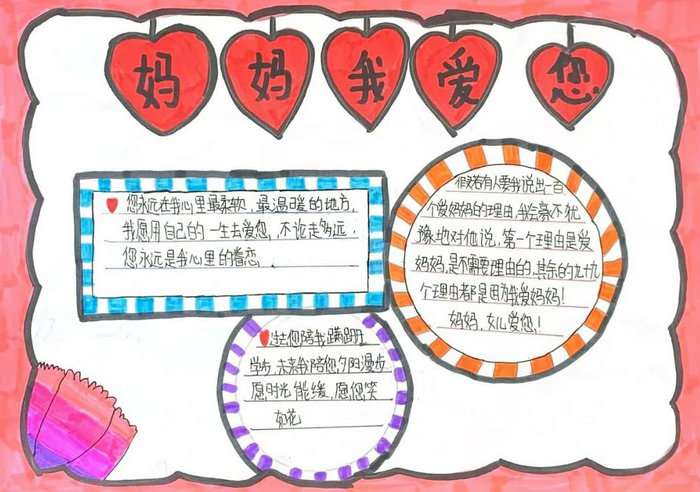 妈妈我爱您
您永远在我心里最柔软,最温暖的地方,
我愿用自己的一生去爱您,不论走多远
您永远是我心里的眷恋
假若有人要我说出一百
个爱妈妈的理由,我会毫不犹
豫地对他说,第一个理由是爱
妈妈,是不需要理由的,其余的九十九
个理由都是因为我爱妈妈!
妈妈,女儿爱您!
过去您陪我蹒跚
学步,未来我陪您夕阳漫步
愿时光能缓,愿您笑
如花